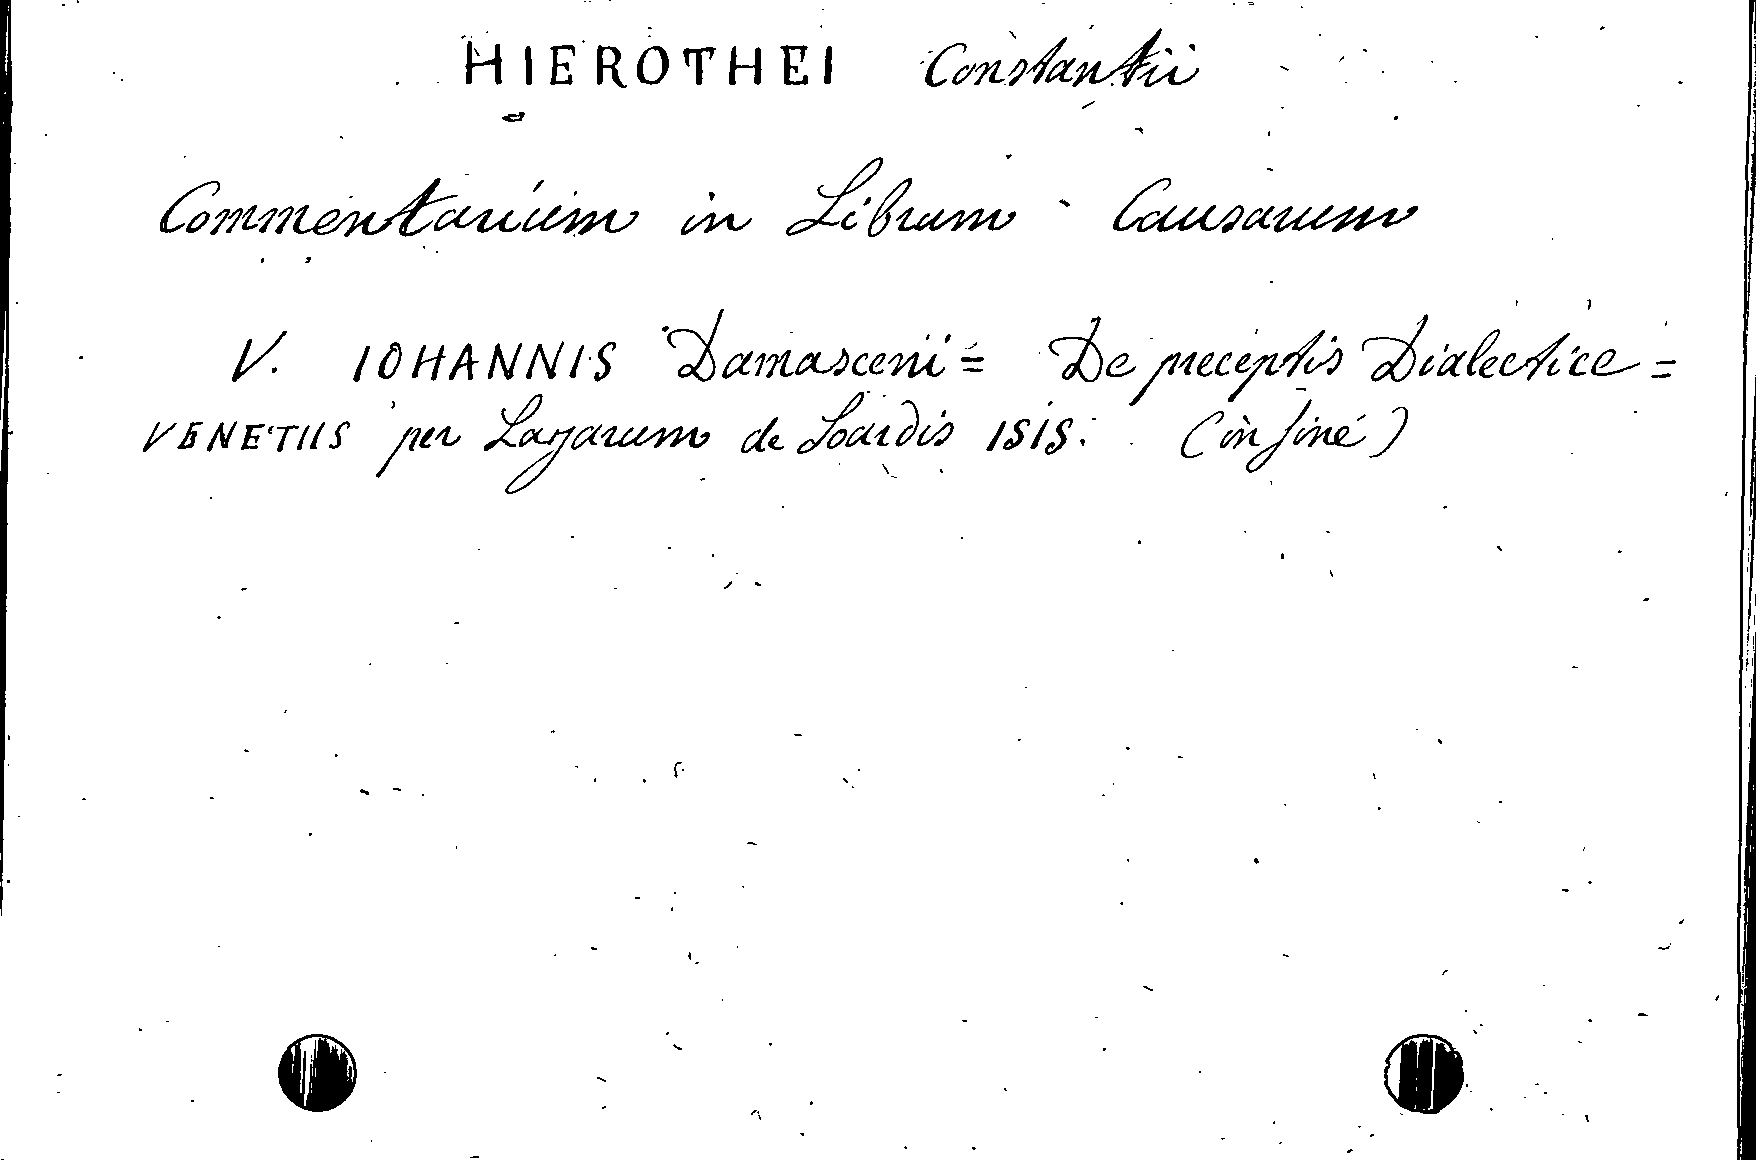 HIEROTHEI Constantii
Commentarium in Librum Causarum
V. IOHANNIS Damasceni = De preceptis Dialectice =
VENETIIS per Lazarum de Soardis 1515. (in fine)